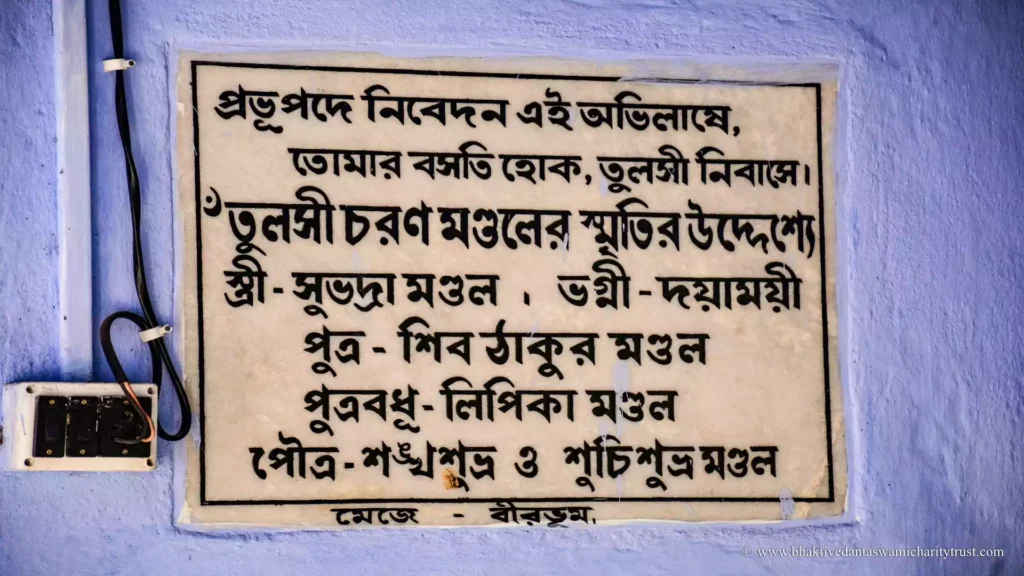 প্রভূপদে নিবেদন এই অভিলাষে,
তোমার বসতি হোক, তুলসী নিবাসে।
ঁতুলসী চরণ মণ্ডলের স্মৃতির উদ্দেশ্যে
স্ত্রী - সুভদ্রা মণ্ডল । ভগ্নী - দয়াময়ী
পুত্র - শিব ঠাকুর মণ্ডল
পুত্রবধূ - লিপিকা মণ্ডল
পৌত্র - শঙ্খশুভ্র ও শুচিশুভ্র মণ্ডল
মেজে - বীরভূম.
© www.bhaktivedantaswamicharitytrust.com